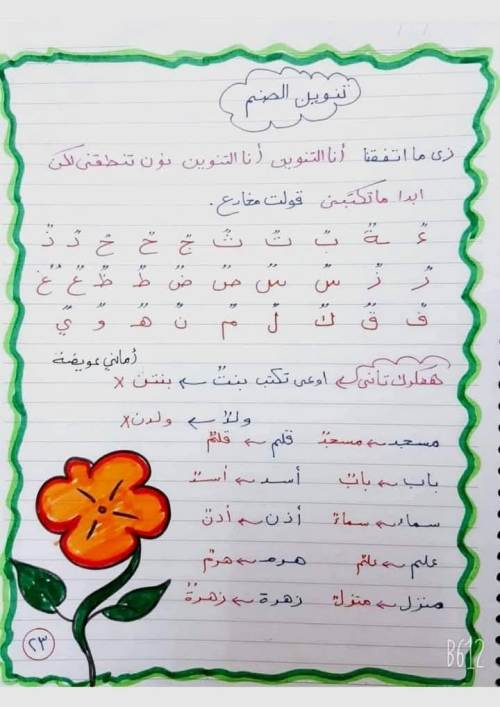 تنوين الضم
زى ما اتفقنا أنا التنوين أنا التنوين نون تنطقنى لكن
ابدا ما تكتبنى قولت مخادع.
ءٌ ـةٌ بٌ تٌ ثٌ جٌ حٌ خٌ دٌ ذٌ
رٌ زٌ سٌ شٌ صٌ ضٌ طٌ ظٌ عٌ غٌ
فٌ قٌ كٌ لٌ مٌ نٌ هـٌ وٌ يٌ
أمانى عويضة
هفكرك تانى ← اوعى تكتب بنتٌ ← بنتن x
ولدٌ ← ولدن x
مسجد ← مسجدٌ قلم ← قلمٌ
باب ← بابٌ أسد ← أسدٌ
سماء ← سماءٌ أذن ← أذنٌ
علم ← علمٌ هرم ← هرمٌ
منزل ← منزلٌ زهرة ← زهرةٌ
٢٣
B612